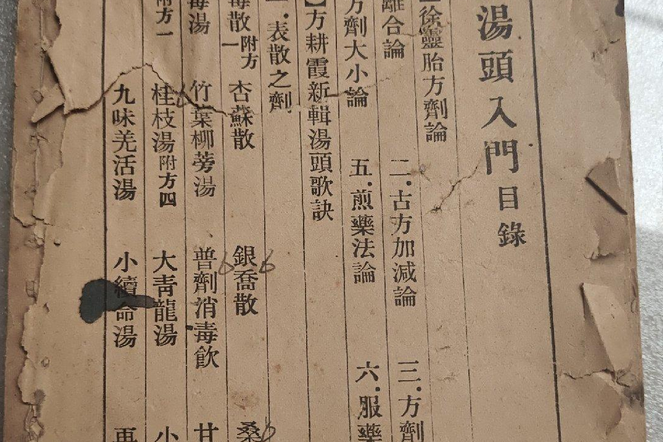 湯頭入門目錄
徐靈胎方劑論
離合論 二．古方加減論 三．方劑
方劑大小論 五．煎藥法論 六．服藥
方耕霞新輯湯頭歌訣
一．表散之劑
毒散附方一 杏蘇散 銀喬散 桑
毒湯 竹葉柳蒡湯 普劑消毒飲 甘
附方一 桂枝湯附方四 大青龍湯 小
九味羌活湯 小續命湯 再